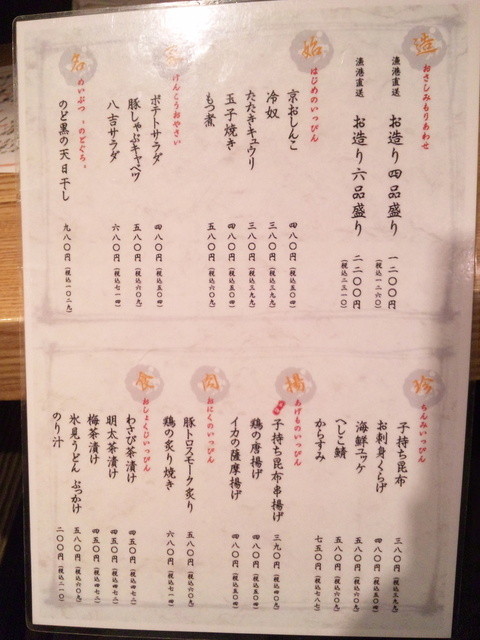 造
おさしみもりあわせ
漁港直送 お造り四品盛り 一二〇〇円 (税込一二六〇)
漁港直送 お造り六品盛り 二二〇〇円 (税込二三一〇)
始
はじめのいっぴん
京おしんこ 四八〇円 (税込五〇四)
冷奴 三八〇円 (税込三九九)
たたきキュウリ 三八〇円 (税込三九九)
玉子焼き 四八〇円 (税込五〇四)
もつ煮 五八〇円 (税込六〇九)
けんこうおやさい
ポテトサラダ 四八〇円 (税込五〇四)
豚しゃぶキャベツ 五八〇円 (税込六〇九)
八吉サラダ 六八〇円 (税込七一四)
名
めいぶつ、のどぐろ。
のど黒の天日干し 九八〇円 (税込一〇二九)
珍
ちんみいっぴん
子持ち昆布 三八〇円 (税込三九九)
お刺身くらげ 四八〇円 (税込五〇四)
海鮮ユッケ 五八〇円 (税込六〇九)
へしこ鯖 五八〇円 (税込六〇九)
からすみ 七五〇円 (税込七八七)
揚
あげものいっぴん
子持ち昆布串揚げ 三九〇円 (税込四〇九)
鶏の唐揚げ 四八〇円 (税込五〇四)
イカの薩摩揚げ 四八〇円 (税込五〇四)
肉
おにくのいっぴん
豚トロスモーク炙り 五八〇円 (税込六〇九)
鶏の炙り焼き 六八〇円 (税込七一四)
食
おしょくじいっぴん
わさび茶漬け 四五〇円 (税込四七二)
明太茶漬け 四五〇円 (税込四七二)
梅茶漬け 四五〇円 (税込四七二)
氷見うどん ぶっかけ 五八〇円 (税込六〇九)
のり汁 二〇〇円 (税込二一〇)